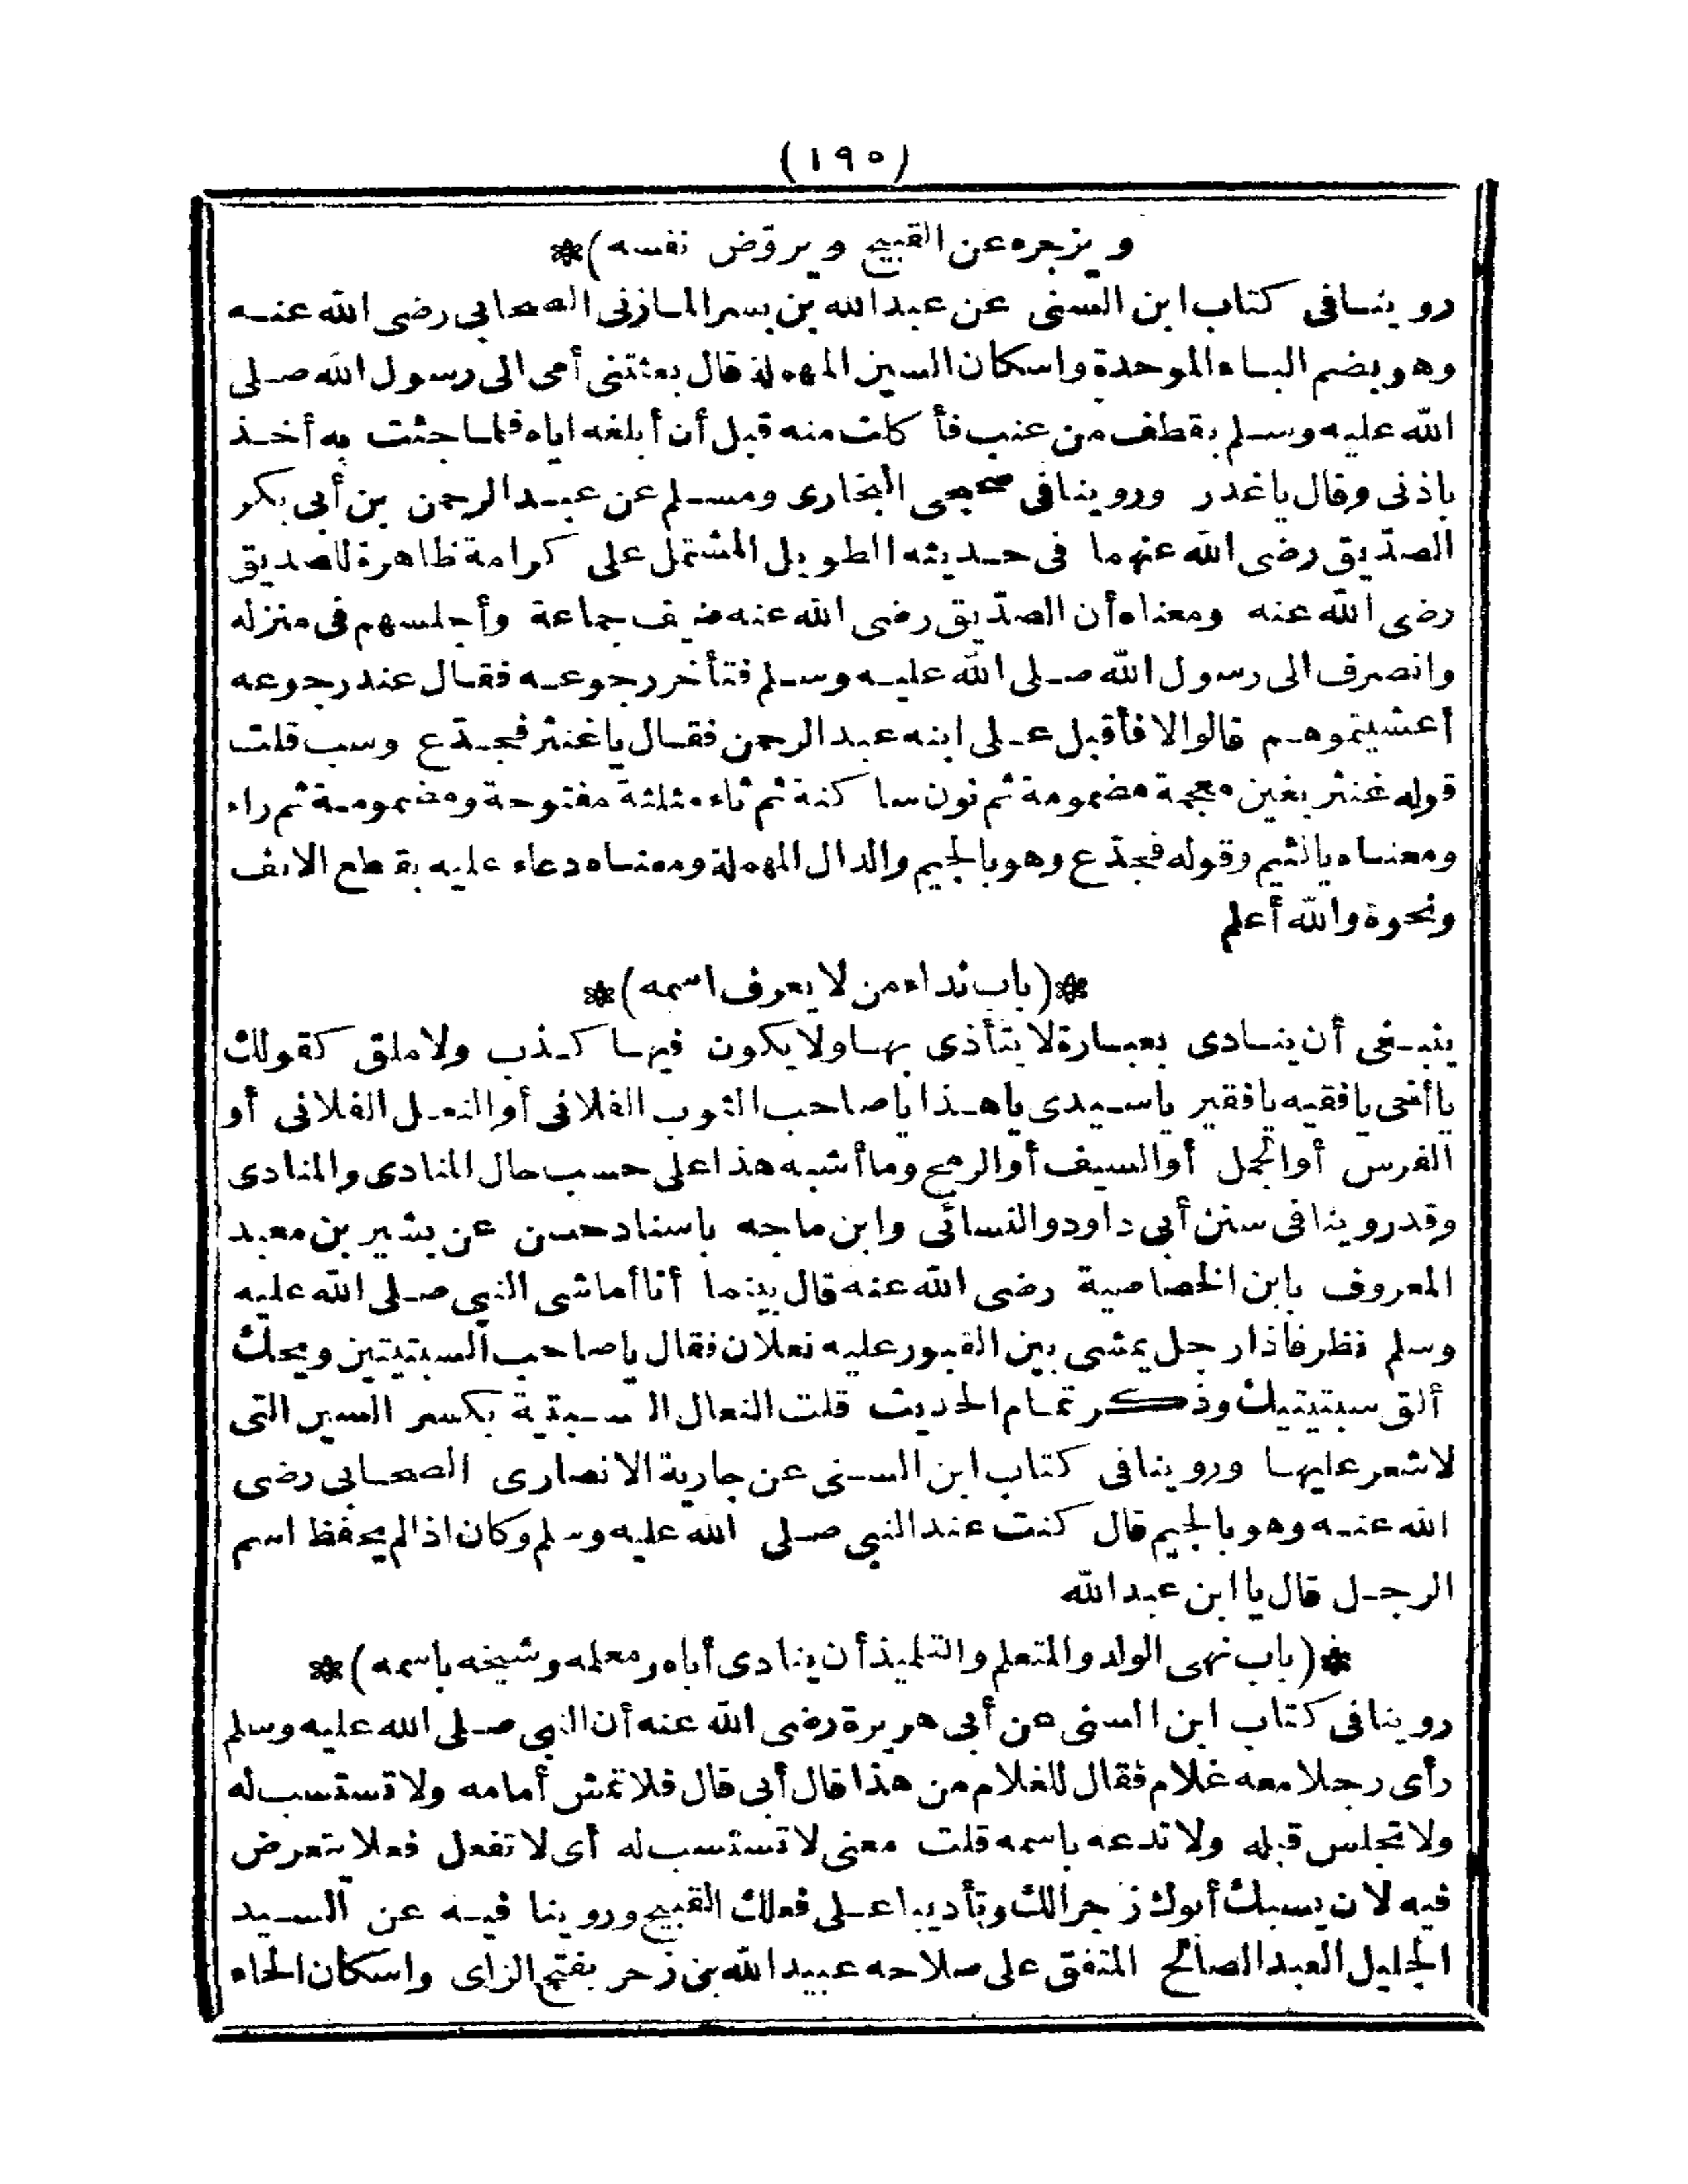 (١٩٥)
ويزجره عن القبيح ويروّض نفسه)*
روينا فى كتاب ابن السنى عن عبدالله بن بسر المازنى الصحابى رضى الله عنه
وهو بضم الباء الموحدة واسكان السين المهملة قال بعثتنى أمى الى رسول الله صلى
الله عليه وسلم بقطف من عنب فأكلت منه قبل أن أبلغه اياه فلما جئت به أخذ
باذنى وقال ياغدر وروينا فى صحيحى البخارى ومسلم عن عبد الرحمن بن أبى بكر
الصدّيق رضى الله عنهما فى حديثه الطويل المشتمل على كرامة ظاهرة للصديق
رضى الله عنه ومعناه أن الصدّيق رضى الله عنه ضيف جماعة وأجلسهم فى منزله
وانصرف الى رسول الله صلى الله عليه وسلم فتأخر رجوعه فقال عند رجوعه
أعشيتموهم قالوا لا فأقبل على ابنه عبد الرحمن فقال ياغنثر فجدّع وسب قلت
قوله غنثر بغين معجمة مضمومة ثم نون ساكنة ثم ثاء مثلثة مفتوحة ومضمومة ثم راء
ومعناه يالئيم وقوله فجدّع وهو بالجيم والدال المهملة ومعناه دعاء عليه بقطع الانف
ونحوه والله أعلم
*(باب نداء من لا يعرف اسمه)*
ينبغى أن ينادى بعبارة لا يتأذى بها ولا يكون فيها كذب ولا ملق كقولك
يا أخى يافقيه يافقير ياسيدى ياهذا ياصاحب الثوب الفلانى أو النعل الفلانى أو
الفرس أو الجمل أو السيف أو الرمح وما أشبه هذا على حسب حال المنادى والمنادى
وقد روينا فى سنن أبى داود والنسائى وابن ماجه باسناد حسن عن بشير بن معبد
المعروف بابن الخصاصية رضى الله عنه قال بينما أنا أماشى النبى صلى الله عليه
وسلم نظر فاذا رجل يمشى بين القبور عليه نعلان فقال ياصاحب السبتيتين ويحك
ألق سبتيتيك وذكر تمام الحديث قلت النعال السبتية بكسر السين التى
لا شعر عليها وروينا فى كتاب ابن السنى عن جارية الانصارى الصحابى رضى
الله عنه وهو بالجيم قال كنت عند النبى صلى الله عليه وسلم وكان اذا لم يحفظ اسم
الرجل قال يا ابن عبد الله
*(باب نهى الولد والمتعلم والتلميذ أن ينادى أباه ومعلمه وشيخه باسمه)*
روينا فى كتاب ابن السنى عن أبى هريرة رضى الله عنه أن النبى صلى الله عليه وسلم
رأى رجلا معه غلام فقال للغلام من هذا قال أبى قال فلا تمش أمامه ولا تستسب له
ولا تجلس قبله ولا تدعه باسمه قلت معنى لا تستسب له أى لا تفعل فعلا يتعرض
فيه لان يسبك أبوك زجرا لك وتأديبا على فعلك القبيح وروينا فيه عن السيد
الجليل العبد الصالح المتفق على صلاحه عبيد الله بن زحر بفتح الزاى واسكان الحاء